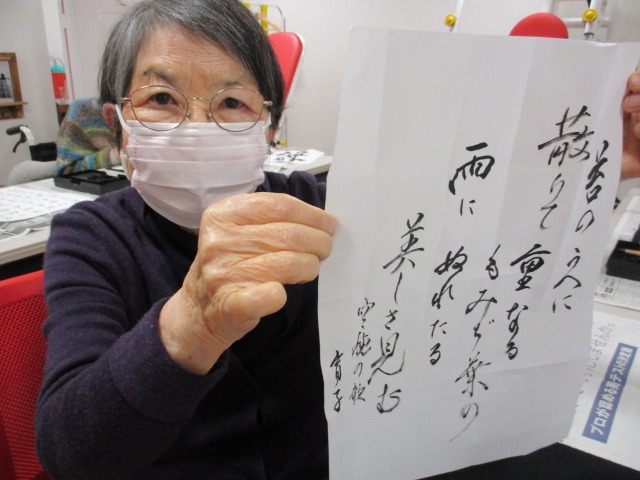 苔のうへに
散りて重なる
もみぢ葉の
雨にぬれたる
美しさ見む
空穂の歌